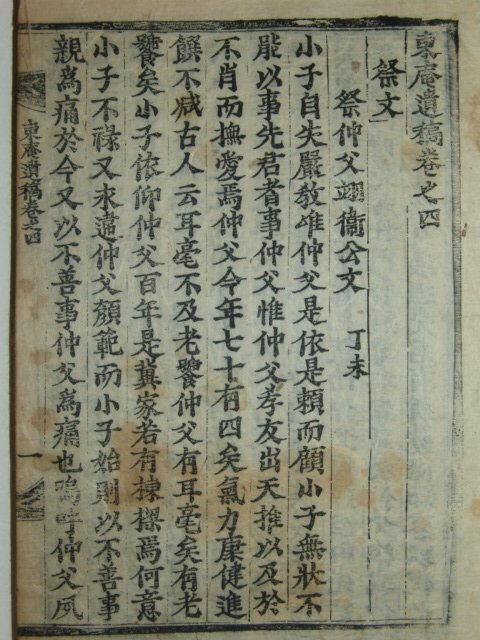 東庵遺稿卷之四
祭文
祭仲父翊衛公文 丁未
小子自失嚴教唯仲父是依是賴而顧小子無狀不
能以事先君者事仲父惟仲父孝友出天推以及於
不肖而撫愛焉仲父今年七十有四矣氣力康健進
饌不减古人云耳毫不及老饕仲父有耳毫矣有老
饕矣小子依仰仲父百年是冀家若有棟樑焉何意
小子不祿又未逮仲父顔範而小子始則以不善事
親爲痛於今又以不善事仲父爲痛也嗚呼仲父夙
東庵遺稿卷之四
一